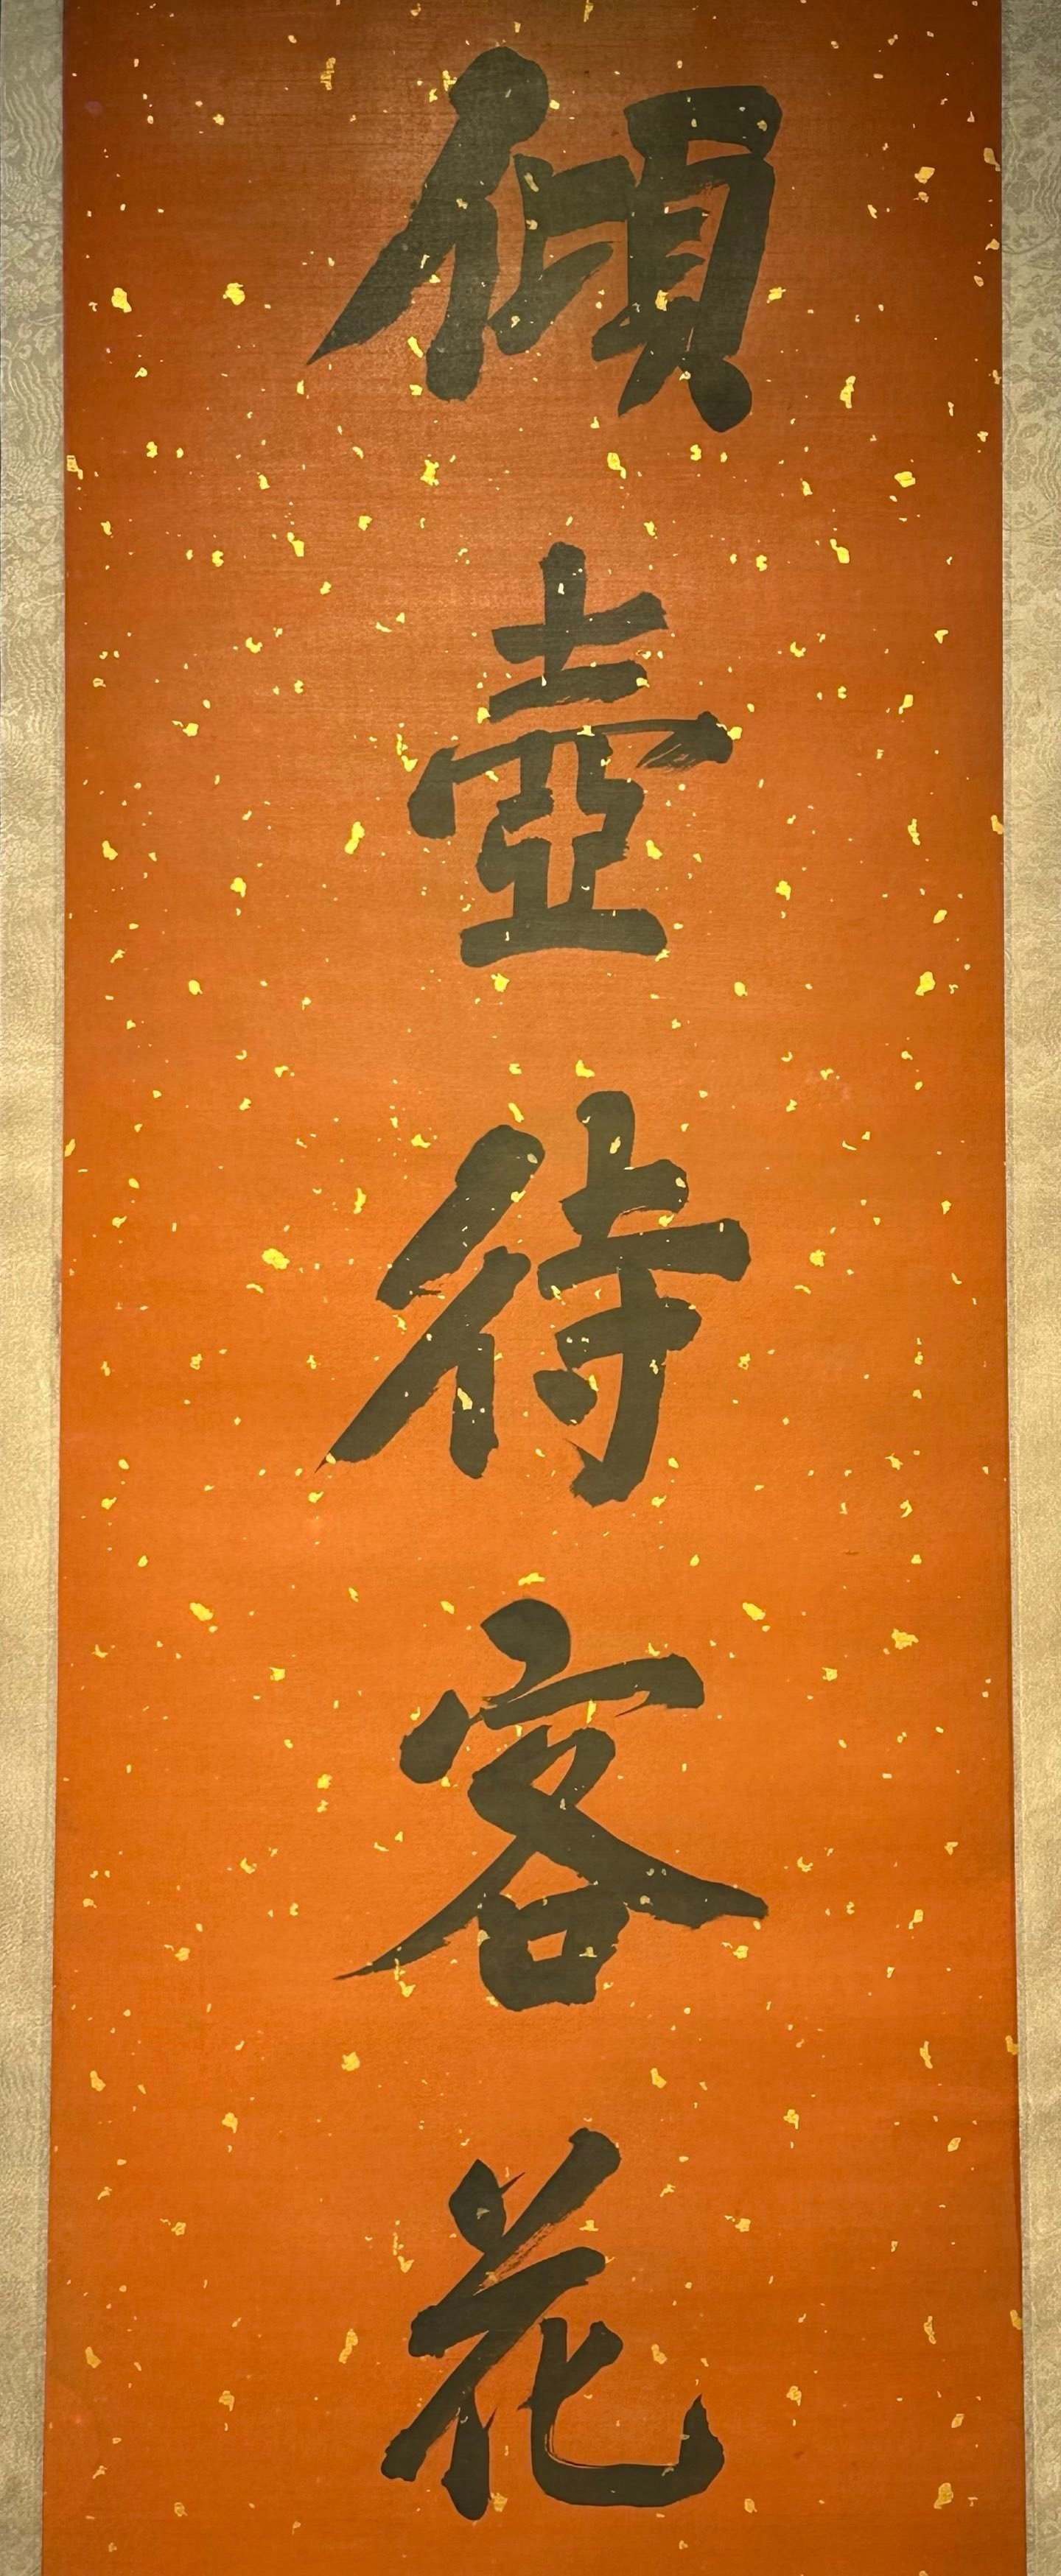 傾壺待客花